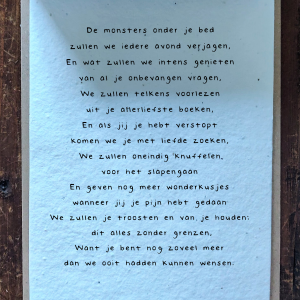 De monsters onder je bed
zullen we iedere avond verjagen,
En wat zullen we intens genieten
van al je onbevangen vragen,
We zullen telkens voorlezen
uit je allerliefste boeken,
En als jij je hebt verstopt
komen we je met liefde zoeken,
We zullen oneindig knuffelen,
voor het slapengaan
En geven nog meer wonderkusjes
wanneer jij je pijn hebt gedaan
We zullen je troosten en van je houden:
dit alles zonder grenzen,
Want je bent nog zoveel meer
dan we ooit hadden kunnen wensen.